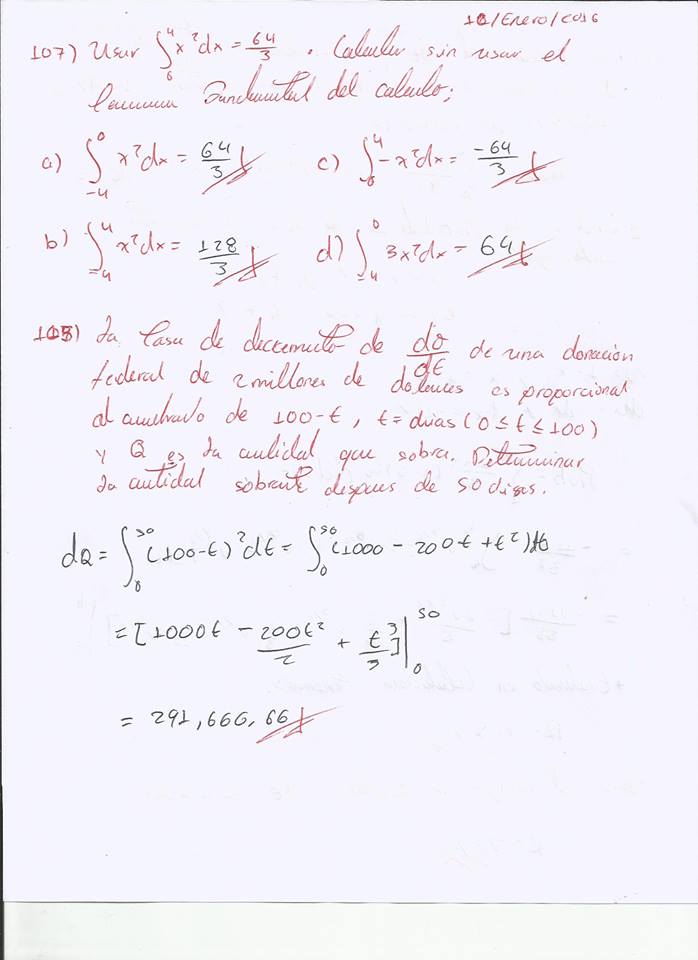 10/Enero/2016
107) Usar ∫₀⁴ x²dx = 64/3 . Calcular sin usar el
Fundamental del calculo;
a) ∫₋₄⁰ x²dx = 64/3 c) ∫₀⁴ -x²dx = -64/3
b) ∫₋₄⁴ x²dx = 128/3 d) ∫₋₄⁰ 3x²dx = 64
La tasa de decremento de dQ/dt de una donación
federal de 2 millones de dolares es proporcional
al cuadrado de 100-t, t=dias (0≤t≤100)
y Q es la cantidad que sobra. Determinar
la cantidad sobrante despues de 50 dias.
dQ = ∫₀⁵⁰ (100-t)²dt = ∫₀⁵⁰ (1000 - 200t + t²)dt
= [1000t - 200t²/2 + t³/3]|₀⁵⁰
= 291,666.66